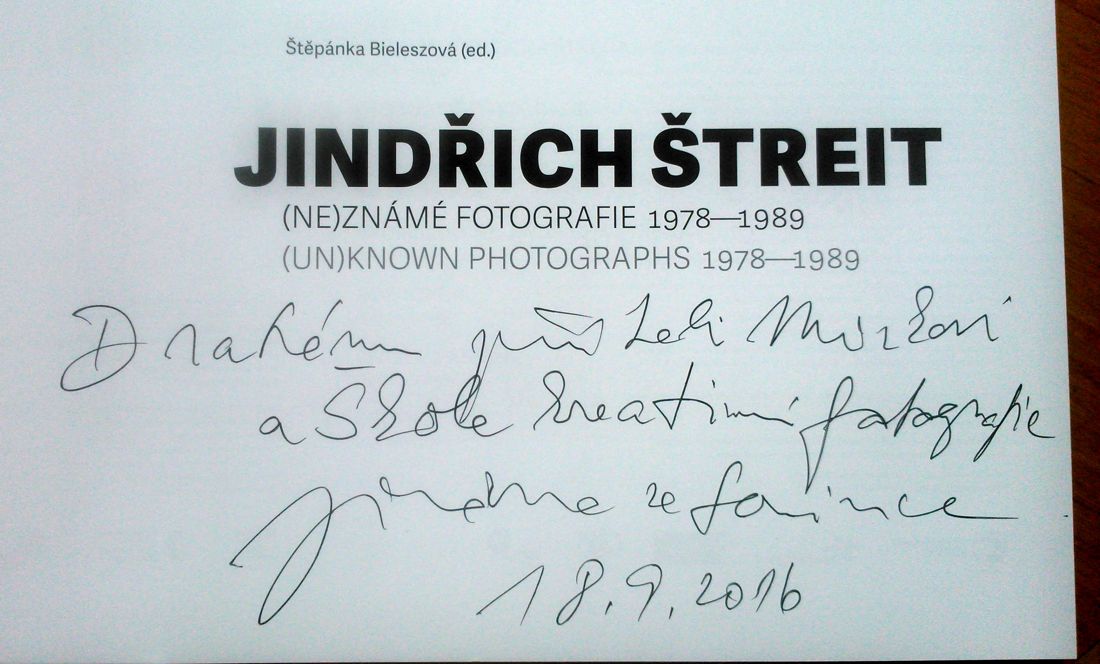 Štěpánka Bieleszová (ed.)
JINDŘICH ŠTREIT
(NE)ZNÁMÉ FOTOGRAFIE 1978—1989
(UN)KNOWN PHOTOGRAPHS 1978—1989
Drahému příteli
a Škole kreativní fotografie
ze
18.9.2016